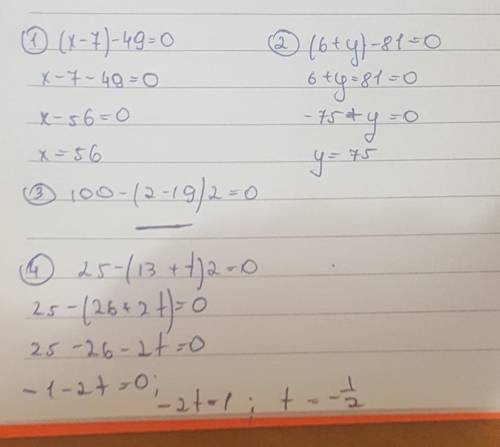 ① (x-7)-49=0
x-7-49=0
x-56=0
x=56
② (6+y)-81=0
6+y=81=0
-75+y=0
y=75
③ 100-(2-19)2=0
④ 25-(13+t)2=0
25-(26+2t)=0
25-26-2t=0
-1-2t=0;
-2t=1; t=-1/2